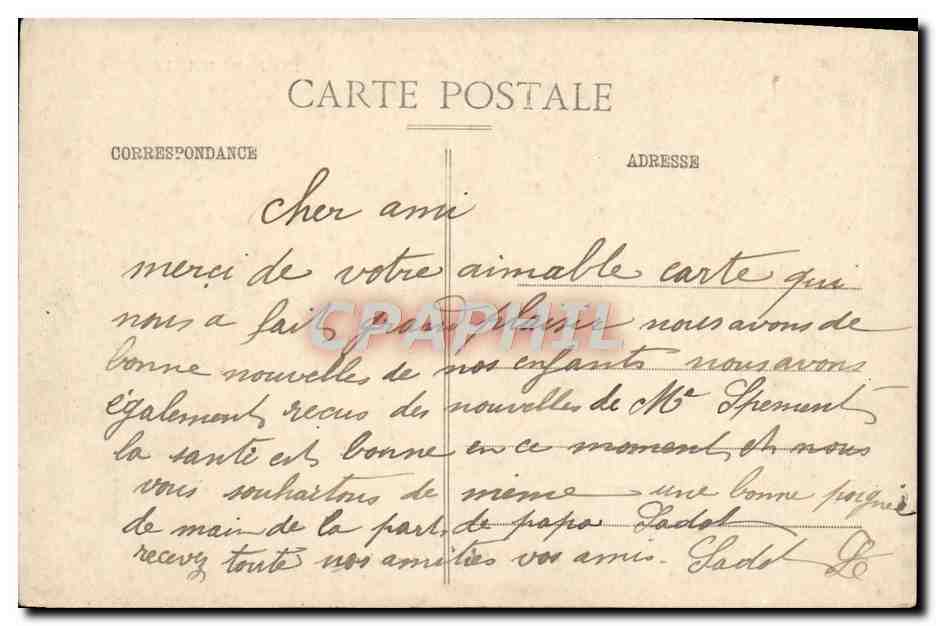 CARTE POSTALE
CORRESPONDANCE
ADRESSE
cher ami
merci de votre aimable carte qui
nous a fait grand plaisir nous avons de
bonne nouvelles de nos enfants nous avons
également recus des nouvelles de Mr
la santé est bonne en ce moment et nous
vous souhaitons de même une bonne poignée
de main de la part de papa Sadot
recevez touté nos amitiés vos amis. Sadot
CPAPHIL